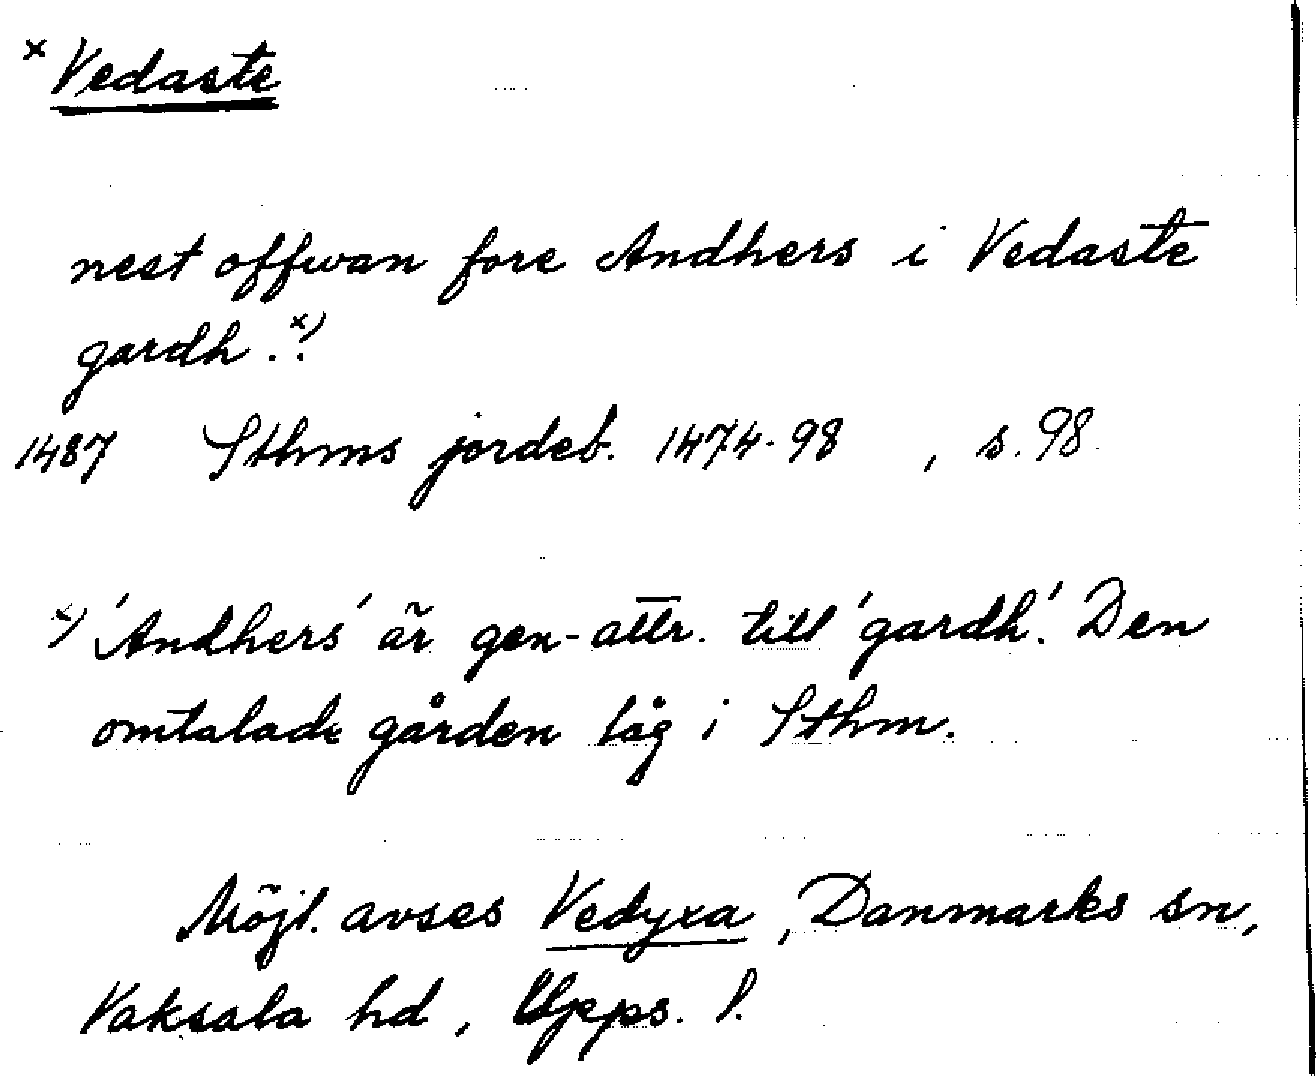 x Vedaste
nest offwan fore Andhers i Vedaste
gardh . x)
1487 Sthms jordeb. 1474-98 , s. 98
x) 'Andhers' är gen-attr. till 'gardh'. Den
omtalade gården låg i Sthm.
Möjl. avses Vedyxa, Danmarks sn,
Vaksala hd, Upps. l.